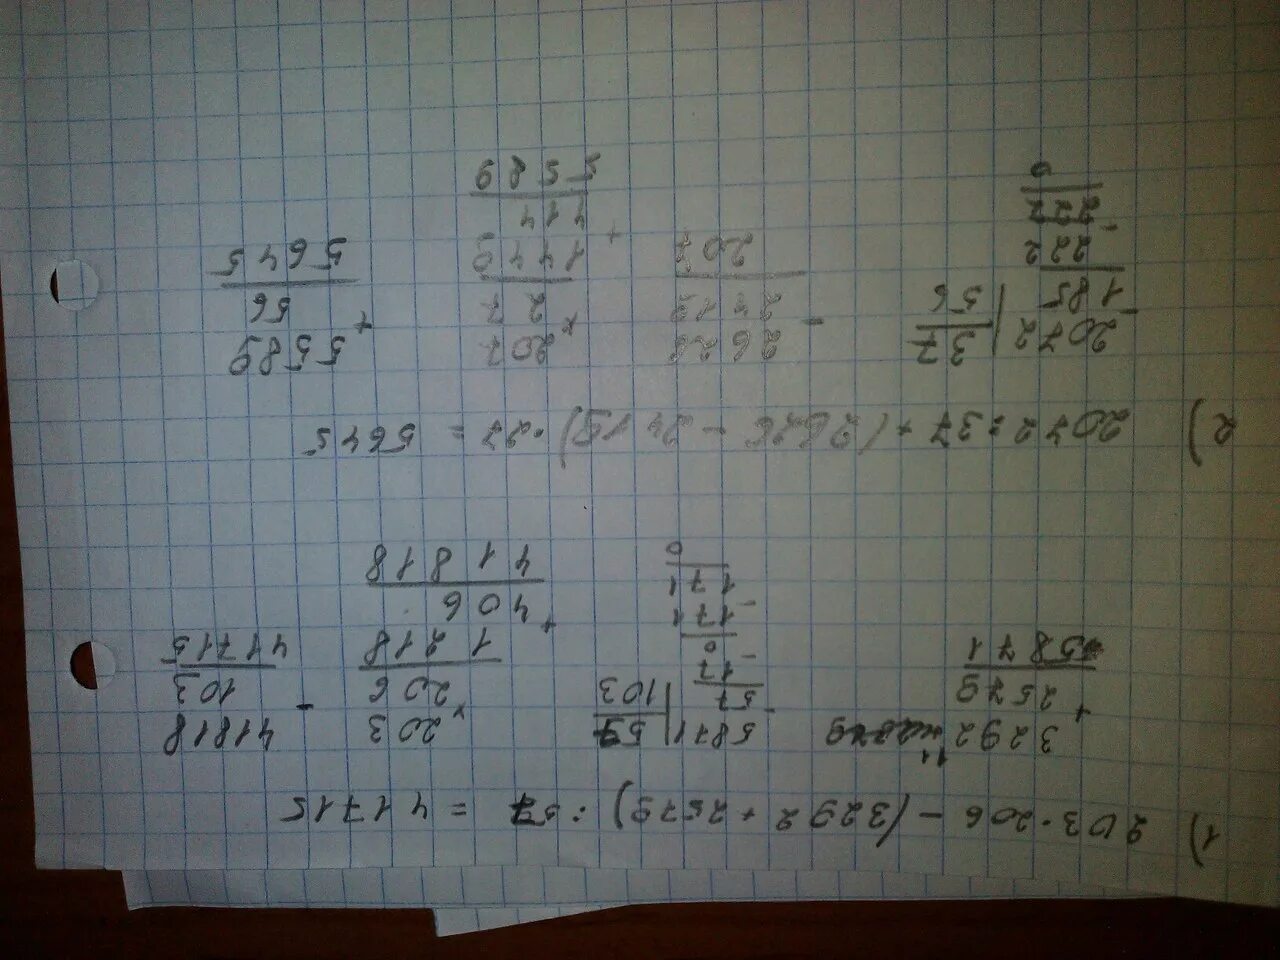 1) 203·206 - (3292 + 2579) : 57 = 41715
+ 3292
2579
5871
- 5871 | 57
57 | 103
- 17
0
- 171
171
0
× 203
206
1218
+ 406
41818
- 41818
103
41715
2) 2072 : 37 + (2626 - 2419) · 27 = 5645
- 2072 | 37
185 | 56
222
- 222
0
- 2626
2419
207
× 207
27
+ 1449
414
5589
+ 5589
56
5645